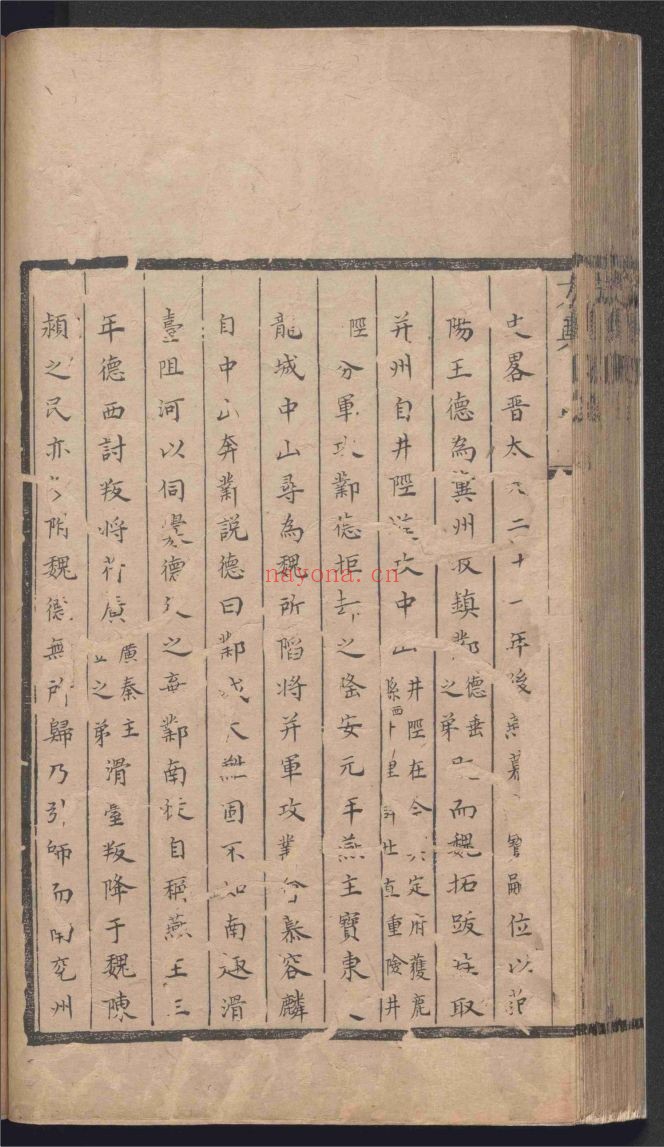 史畧晋太 二十一年後燕慕 寶嗣位以范
陽王德為冀州牧鎮鄴德垂之弟 而魏拓跋珪取
并州自井陘進攻中山井陘在今 定府獲鹿縣西十里 重險井
陘分軍攻鄴德拒却之隆安元年燕主寶東
龍城中山尋為魏所陷将并軍攻業 慕容麟
自中山奔業説德曰鄴城大 固不如南趣滑
臺阻河以伺釁德從之棄鄴南徙自稱燕王三
年德西討叛将苻廣廣秦主 之弟滑臺叛降于魏陳
潁之民亦多附魏德無所歸乃引師而南兖州
nayona.cn